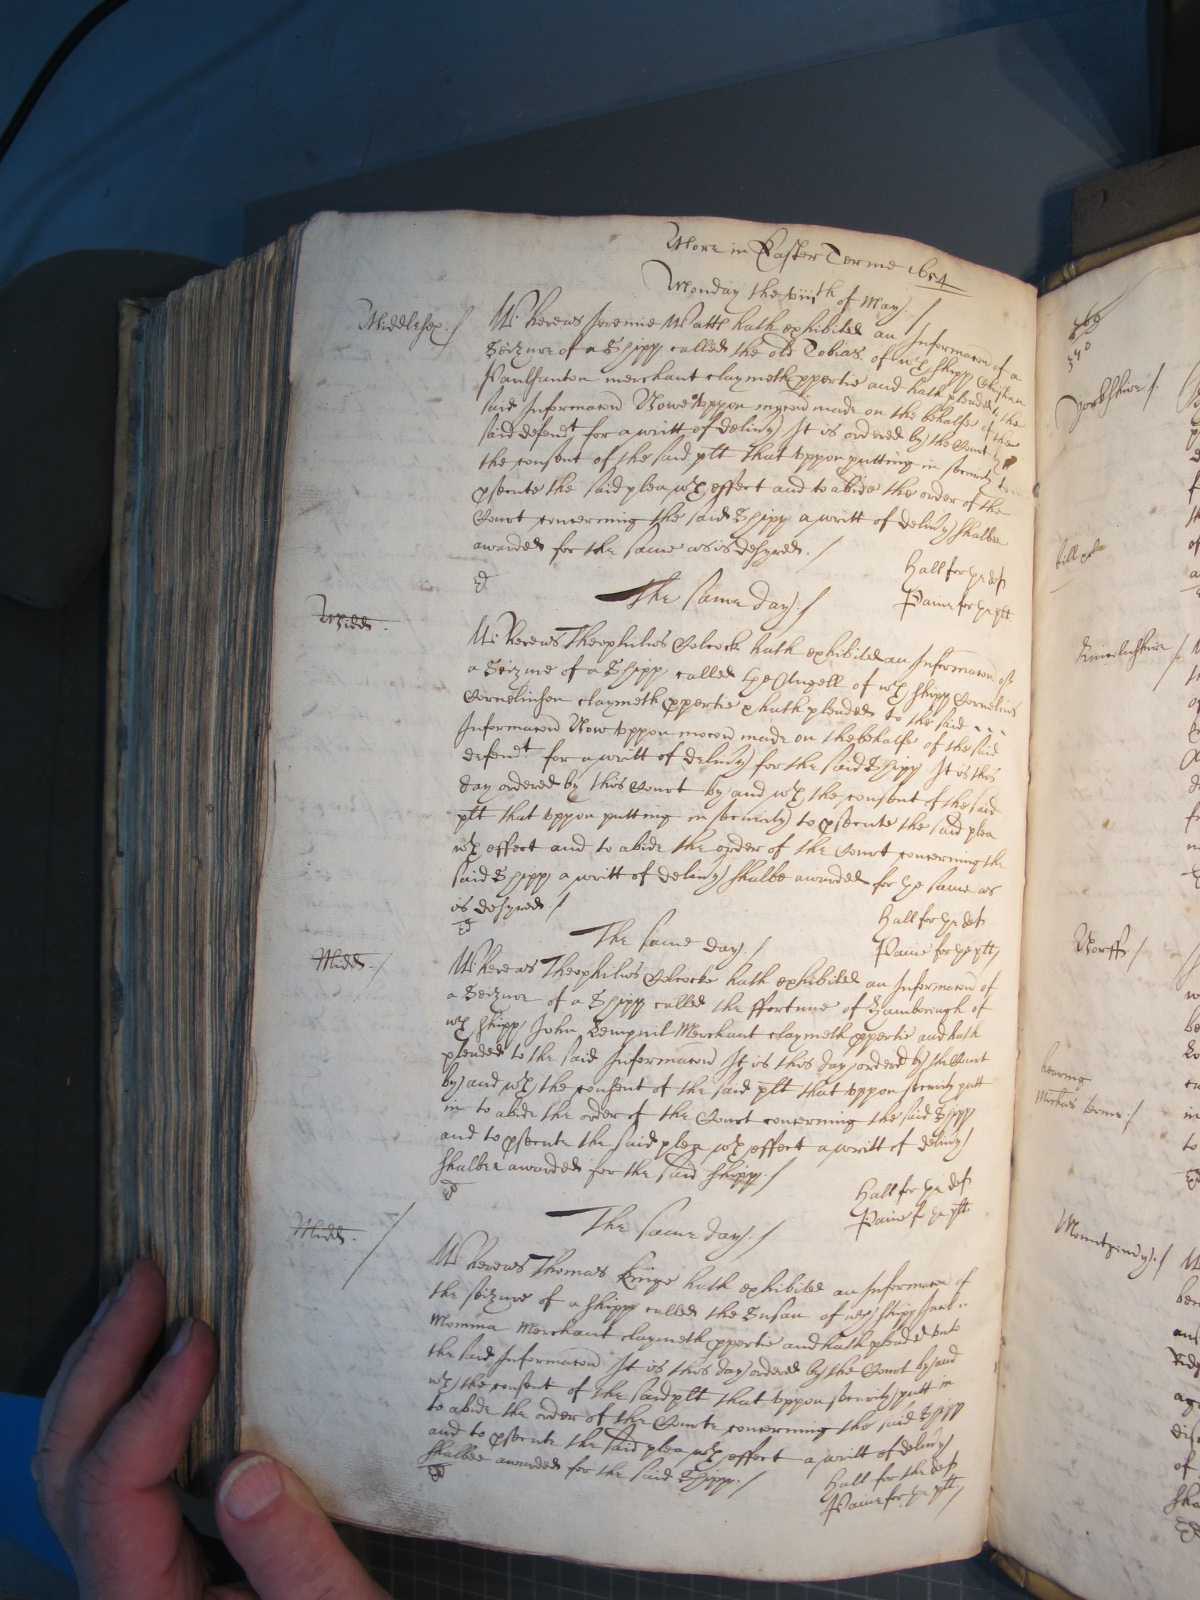 More in Easter Terme 1654
Monday the viiith of May. /
Middlesex. /
Whereas Jeremie Watts hath exhibited an Informacon of a
Seizure of a Shipp called the old Tobias of wch shipp Christian
Paulsanton merchant claymeth ppertie and hath pleaded to the
said Informacon Nowe uppon mocon made on the behalfe of the
said defendt for a writt of delivy It is ordered by the Court
the consent of the said plt that uppon putting in security to
psecute the said plea wth effect and to abide the order of the
Court concerning the said Shipp a writt of delivy shalbee
awarded for the same as is desyred. /
Hall for ye deft
Paine for ye plt
The same day. /
Midds.
Whereas Theophilus Colcock hath exhibited an Informacon of
a Seizure of a Shipp called the Angell of wch shipp Cornelius
Cornelinson claymeth ppertie & hath pleaded to the said
Informacon Now uppon mocon made on the behalfe of the said
defendt for a writt of delivy for the said Shipp It is this
day ordered by this Court by and wth the consent of the said
plt that uppon putting in security to psecute the said plea
wth effect and to abide the order of the Court concerning the
said Shipp a writt of delivy shalbe awarded for ye same as
is desyred. /
Hall for ye deft
Paine for ye plt
The same day. /
Midds. /
Whereas Theophilus Colcocke hath exhibited an Informacon of
a Seizure of a Shipp called the ffortune of Hamborough of
wch shipp John Merchant claymeth ppertie and hath
pleaded to the said Informacon It is this day ordered by the Court
by and wth the consent of the said plt that uppon security putt
in to abide the order of the Court concerning the said Shipp
and to psecute the said plea wth effect a writt of delivy
shalbee awarded for the said shipp. /
Hall for ye deft
Paine f ye plt
The same day. /
Midds. /
Whereas Thomas Kinge hath exhibited an Informacon of
the seizure of a shipp called the Susan of wch shipp
Momma Merchant claymeth ppertie and hath pleaded unto
the said Informacon It is this day ordered by the Court by and
wth the consent of the said plt that uppon security putt in
to abide the order of the Courte concerning the said Shipp
and to psecute the said plea wth effect a writt of delivy
shalbee awarded for the said Shipp. /
Hall for the deft
Paine for ye plt. /
Yorkshire /.
Norff /
hearing
Michas terme. /